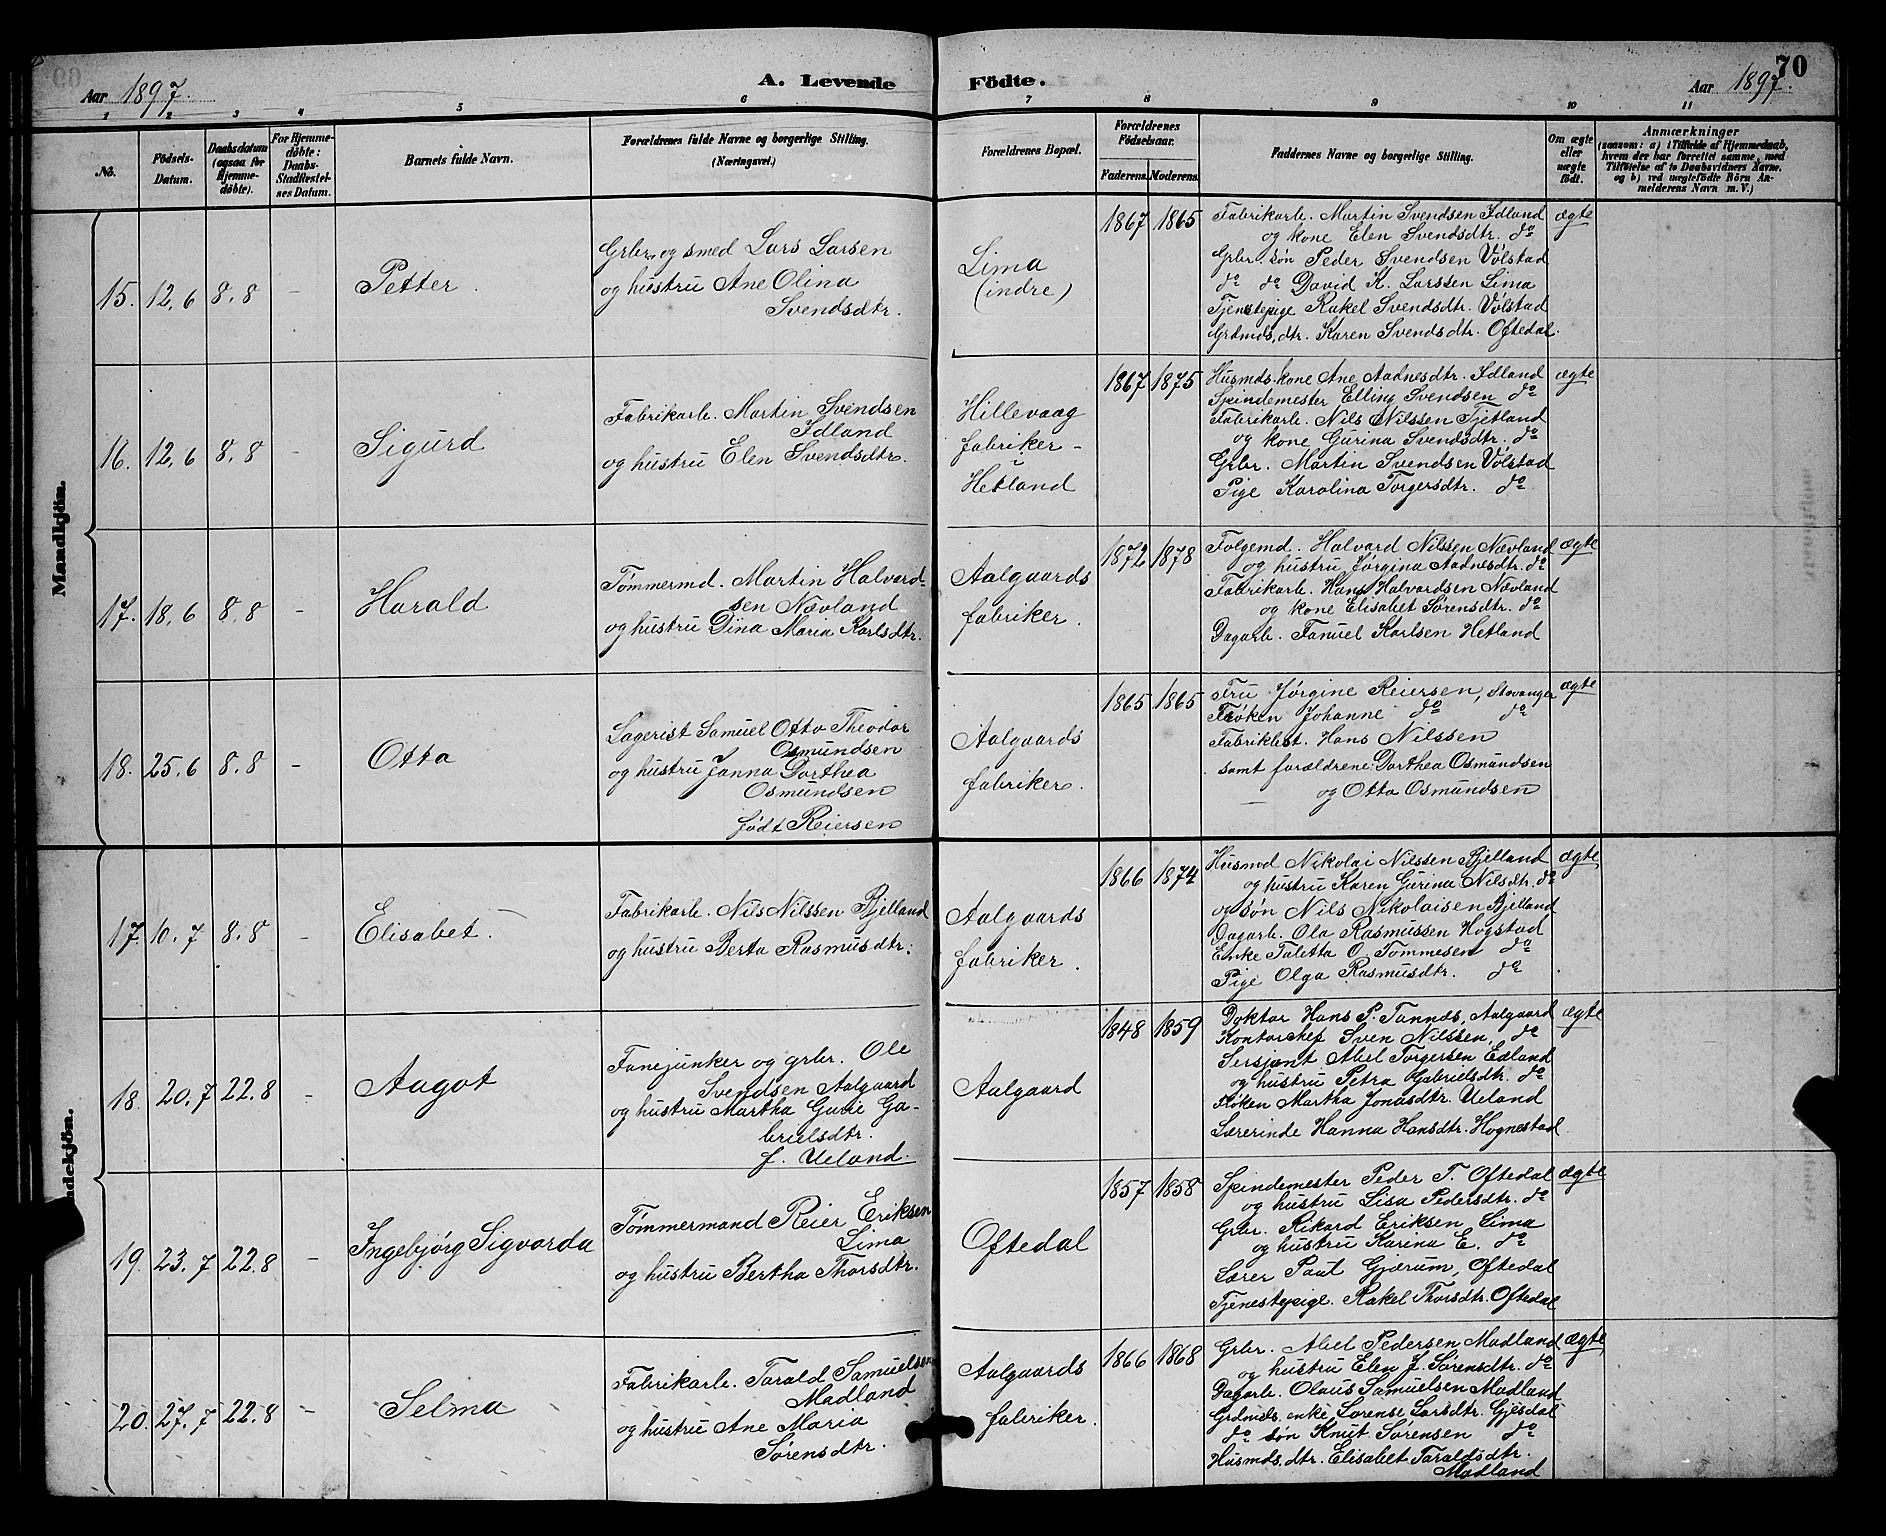 70
Aar 1897.
A. Levende Födte.
Aar 1897.
1 2 3 4 5 6 7 8 9 10 11
No.
Födsels-
Datum.
Daabsdatum
(ogsaa for
Hjemme-
døbte).
For Hjemme-
døbte:
Daabs-
Stadfæstel-
ses Datum.
Barnets fulde Navn.
Forældrenes fulde Navne og borgerlige Stilling.
(Næringsvei.)
Forældrenes Bopæl.
Forældrenes
Födselsaar.
Faderens. Moderens.
Faddernes Navne og borgerlige Stilling.
Om ægte
eller
uægte
født.
Anmærkninger
(saasom: a) i Tilfælde af Hjemmedaab,
hvem der har forrettet samme, med
Tilføielse af to Daabsvidners Navne,
og b) ved uægtefødte Börn An-
melderens Navn m. V.)
Mandkjön.
15. 12.6 8.8 -
Petter.
Grbr. og smed Lars Larsen
og hustru Ane Olina
Svendsdtr.
Lima
(indre)
1867 1865
Fabrikarb. Martin Svendsen Idland
og kone Elen Svendsdtr. do
Grbr. søn Peder Svendsen Volstad
do do David K. Larssen Lima
Tjenestepige Rakel Svendsdtr. Volstad
Grdmds. dtr. Karen Svendsdtr. Oftedal.
ægte
16. 12.6 8.8 -
Sigurd
Fabrikarb. Martin Svendsen
Idland
og hustru Elen Svendsdtr.
Hillevaag
fabriker -
i
Hetland
1867 1875
Husmds. kone Ane Aadnesdtr. Idland
Spindemester Elling Svendsen do
Fabrikarb. Nils Nilssen Tjetland
og kone Gurina Svendsdtr. do
Grbr. Martin Svendsen Volstad
Pige Karolina Torgersdtr. do
ægte
17. 18.6 8.8 -
Harald
Tømmermd. Martin Halvard-
sen Nævland
og hustru Dina Maria Karlsdtr.
Aalgaards
fabriker.
1872 1878
Folgemd. Halvard Nilssen Nævland
og hustru Jørgina Aadnesdtr. do
Fabrikarb. Hans Halvardsen Nævland
og kone Elisabet Sørensdtr. do
Dagarb. Fanuel Karlsen Hetland
ægte
18. 25.6 8.8 -
Otto
Lagerist Samuel Otto Theodor
Osmundsen
og hustru Janna Dorthea
Osmundsen
født Reiersen
Aalgaards
fabriker.
1865 1865
Fru Jørgine Reiersen, Stavanger
Frøken Johanne do do
Fabrikbest. Hans Nilssen
samt forældrene Dorthea Osmundsen
og Otto Osmundsen
ægte
17. 10.7 8.8 -
Elisabet.
Fabrikarb. Nils Nilssen Bjelland
og hustru Berta Rasmusdtr.
Aalgaards
fabriker.
1866 1874
Husmd Nikolai Nilssen Bjelland
og hustru Karen Gurina Nilsdtr. do
og søn Nils Nikolaisen Bjelland
Dagarb. Ola Rasmussen Høgstad
Enke Taletta O. Tommesen do
Pige Olga Rasmusdtr. do
ægte
ndekjön.
18. 20.7 22.8 -
Aagot
Fanejunker og grbr. Ole
Svendsen Aalgaard
og hustru Martha Gurie Ga-
brielsdtr.
f. Ueland.
Aalgaard
1848 1859
Doktor Hans P. Tannds, Aalgaard
Kontorchef Sven Nilssen, do
Sersjant Abel Torgersen Edland
og hustru Petra Gabrielsdtr. do
Frøken Martha Jonasdtr. Ueland
Lærerinde Hanna Hansdtr. Hognestad
ægte
19. 23.7 22.8 -
Ingebjørg Sigvarda
Tømmermand Reier Eriksen
Lima
og hustru Bertha Thorsdtr.
Oftedal
1857 1858
Spindemester Peder T. Oftedal
og hustru Lisa Pedersdtr. do
Grbr. Rikard Eriksen Lima
og hustru Karina E. do
Lærer Paul Gjærum, Oftedal
Tjenestepige. Rakel Thorsdtr. Oftedal
ægte
20. 27.7 22.8 -
Selma
Fabrikarb. Tarald Samuelsen
Madland
og hustru Ane Maria
Sørensdtr.
Aalgaards
fabriker.
1866 1868
Grbr. Abel Pedersen Madland
og hustru Elen J. Sørensdtr. do
Dagarb. Olaus Samuelsen Madland
Grdmds. enke Sørense Larsdtr. Gjesdal
do søn Knut Sørensen do
Husmds. dtr. Elisabet Taraldsdtr.
Madland
ægte